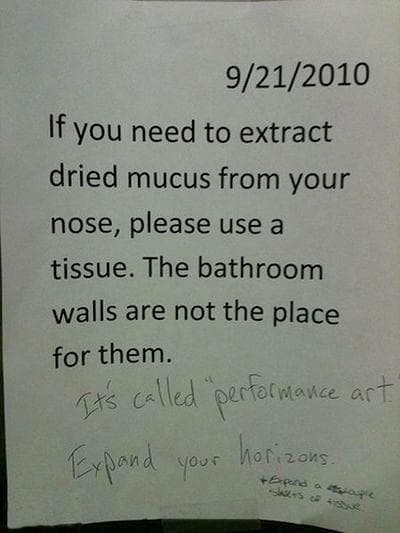 9/21/2010
If you need to extract
dried mucus from your
nose, please use a
tissue. The bathroom
walls are not the place
for them.
It's called "performance art.
Expand your horizons.
*Expand a couple
sheets of tissue